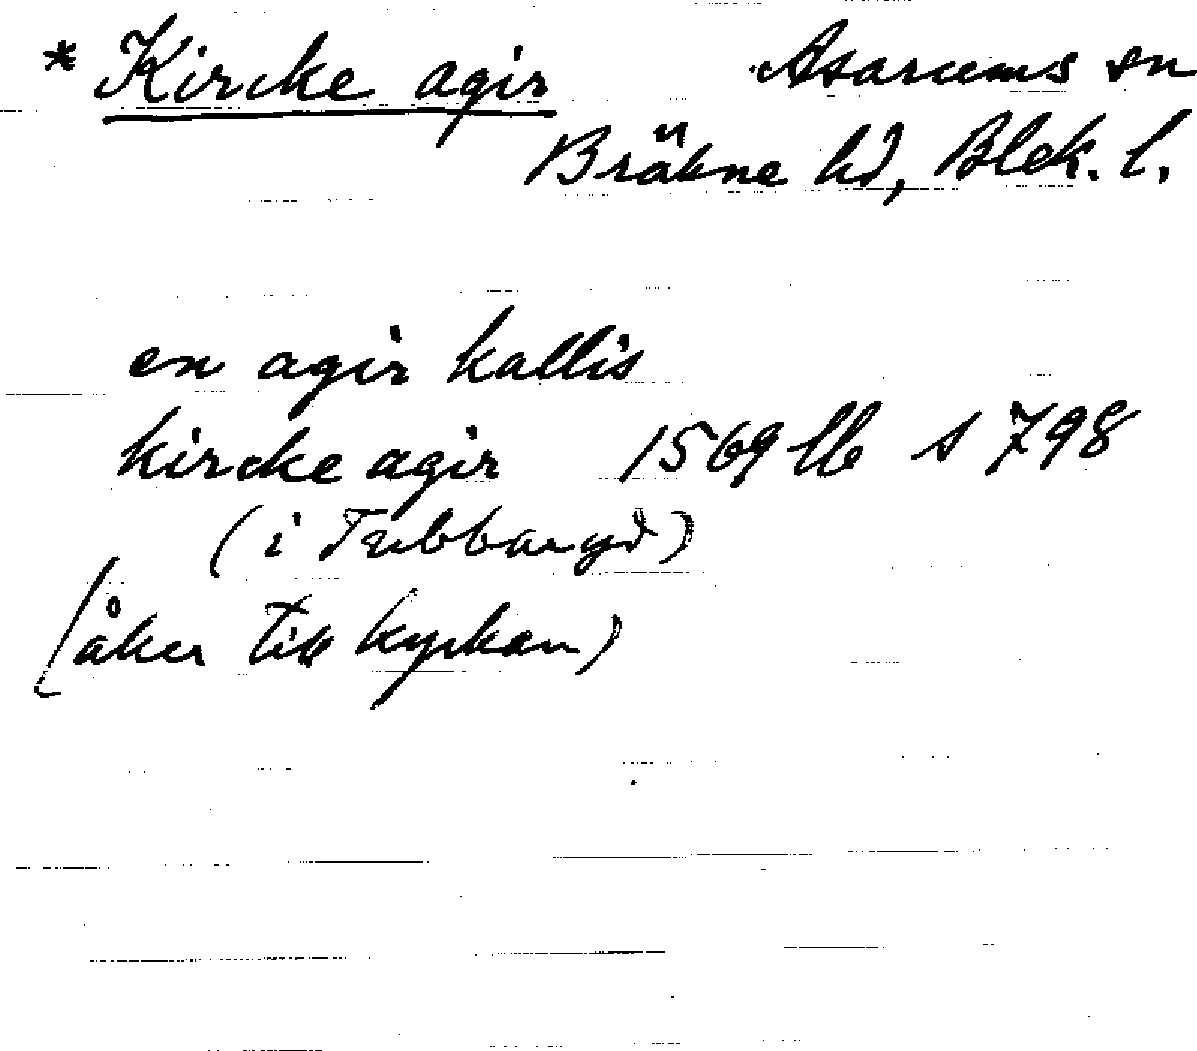 * Kircke agir Asarums sn
Bräkne hd, Blek. l.
en agir kallis
kircke agir 1569 lb s 798
(i Tubbaryd)
(åker till kyrkan)